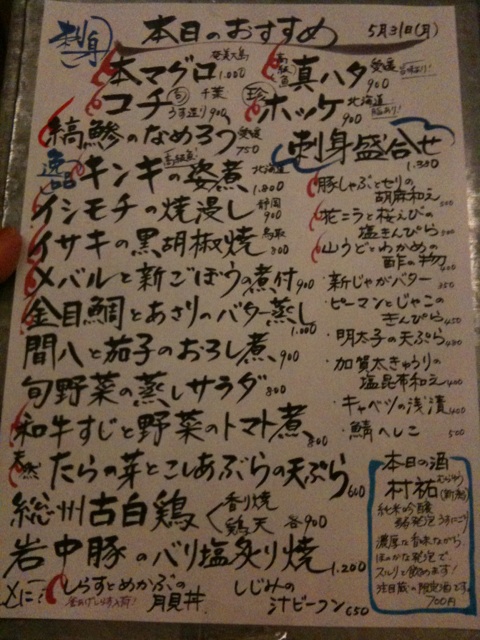 本日のおすすめ
5月31日(月)
刺身
本マグロ 奄美大島 1.000
高級魚 真ハタ 愛媛 900
コチ 旬 千葉 うす造り 900
珍 ホッケ 北海道 900
縞鯵のなめろう 愛媛 750
刺身盛合せ 1.300
逸品
キンキの姿煮 高級魚 北海道 1.800
イシモチの焼浸し 静岡 900
イサキの黒胡椒焼 鳥取 800
メバルと新ごぼうの煮付 900
金目鯛とあさりのバター蒸し 1.000
間八と茄子のおろし煮 900
旬野菜の蒸しサラダ 800
和牛すじと野菜のトマト煮 800
天然 たらの芽とこしあぶらの天ぷら 600
総州古白鶏 香り焼 鶏天 各900
岩中豚のバリ塩炙り焼 1.200
〆に
しらすとめかぶの月見丼
しじみの汁ビーフン 650
豚しゃぶとセリの胡麻和え 500
花ニラと桜えびの塩きんぴら
山うどとわかめの酢の物 400
・新じゃがバター 350
・ピーマンとじゃこのきんぴら 450
・明太子の天ぷら 480
・加賀太きゅうりの塩昆布和え 400
・キャベツの浅漬 400
・鯖へしこ 500
本日の酒
村祐 むらゆう (新潟)
純米吟醸
発泡うすにごり
濃厚な香味ながら
ほのかな発泡で、
スルリと飲めます!
注目蔵の限定酒です。
700円